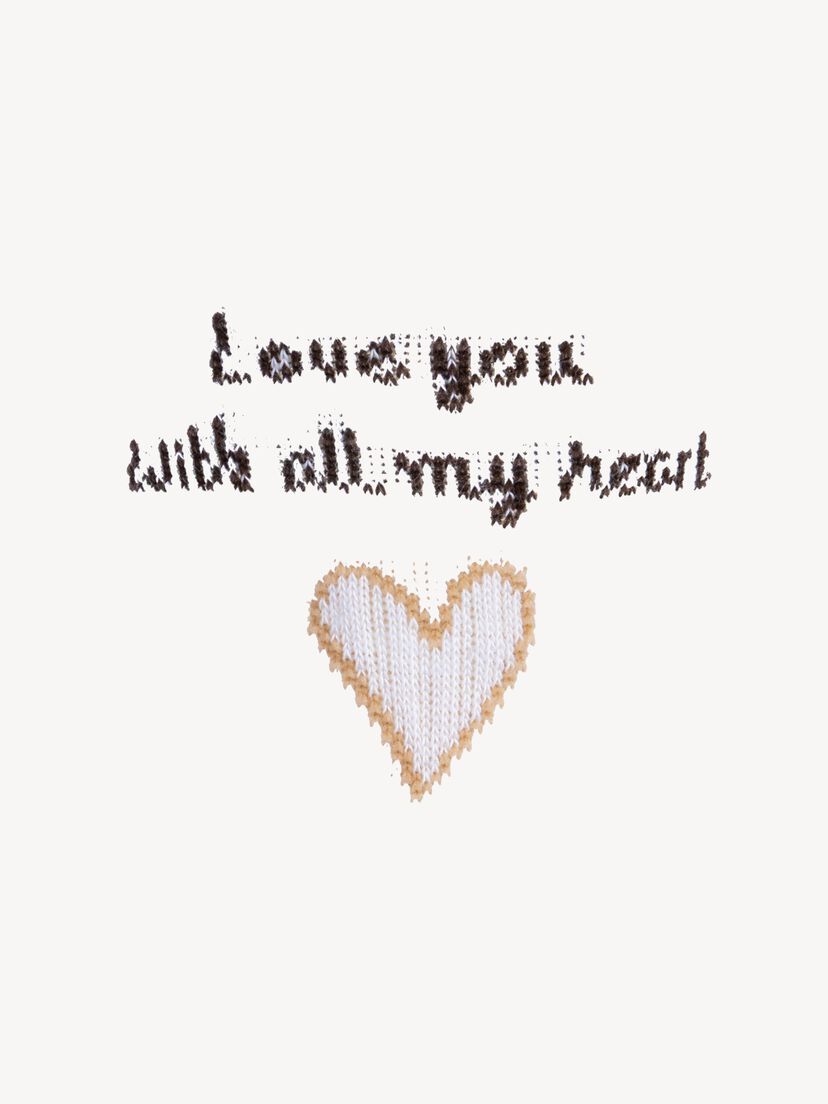 Love you
with all my heart